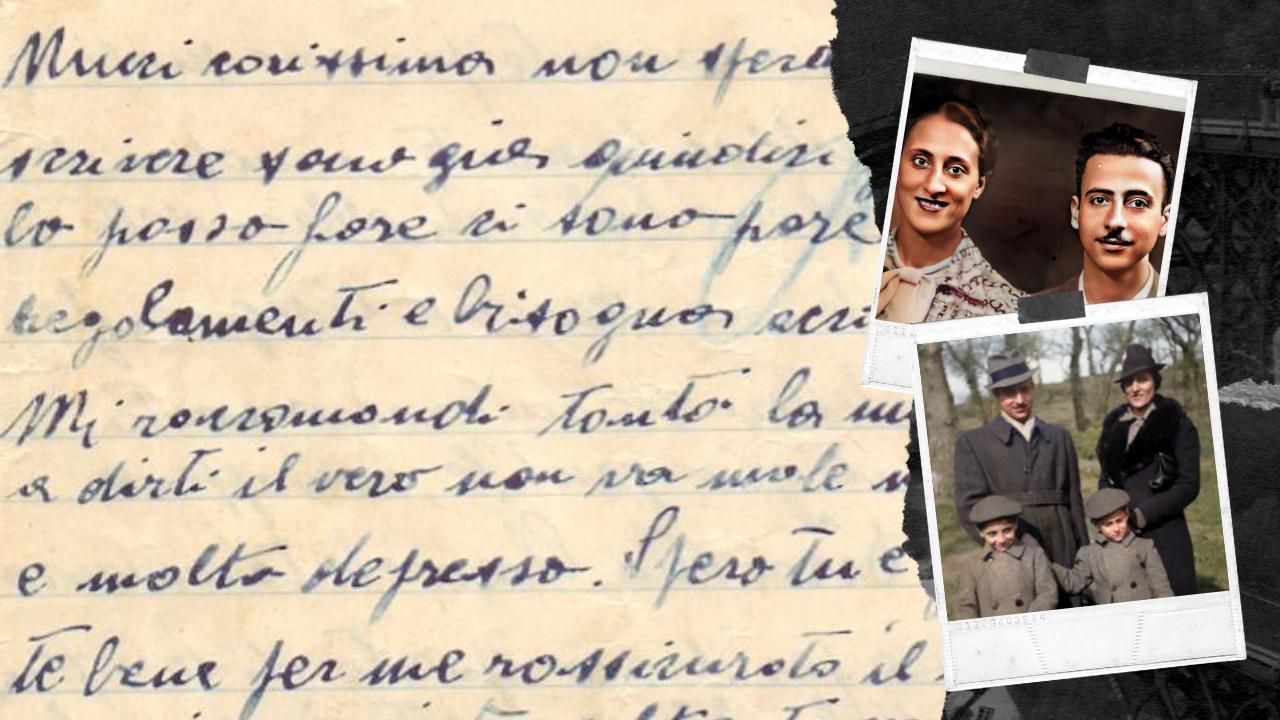 Muci carissima non spera
scrivere sono già quindici
lo posso fare ci sono pare
regolamenti e bisogna scri
Mi raccomandi tanto la
a dirti il vero non va male
e molto depresso. Spero tu e
te bene per me rassicurato il
01100403549